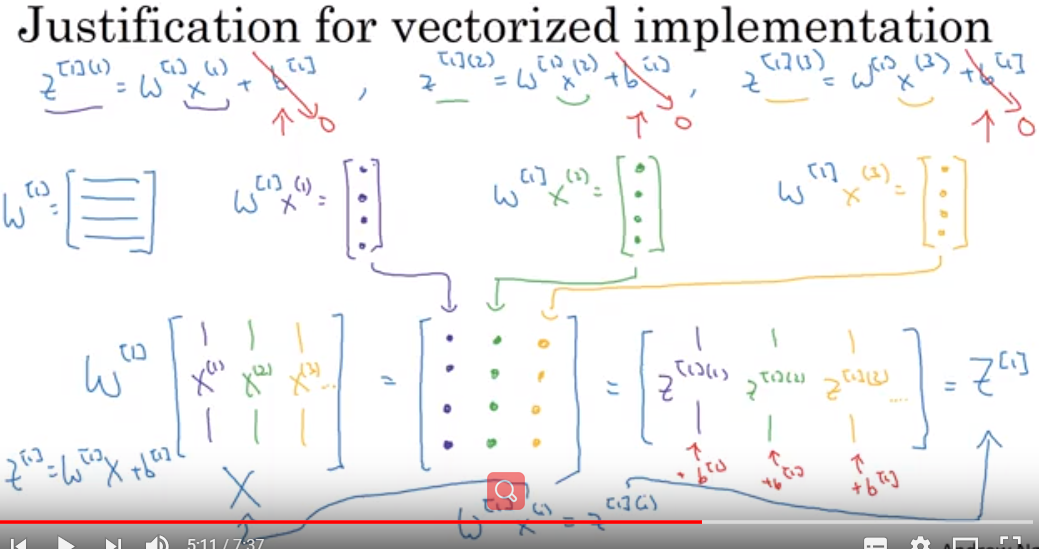 Justification for vectorized implementation
z^[1](1) = W^[1] x^(1) + b^[1] , z^[1](2) = W^[1] x^(2) + b^[1] , z^[1](3) = W^[1] x^(3) + b^[1]
0 0 0
W^[1] = W^[1] x^(1) = W^[1] x^(2) = W^[1] x^(3) =
W^[1] [ x^(1) x^(2) x^(3) ... ] = = [ z^[1](1) z^[1](2) z^[1](3) .... ] = Z^[1]
+b^[1] +b^[1] +b^[1]
z^[1] = W^[1] X + b^[1] X
W^[1] x^(i) = z^[1](i)
5:11 / 7:37